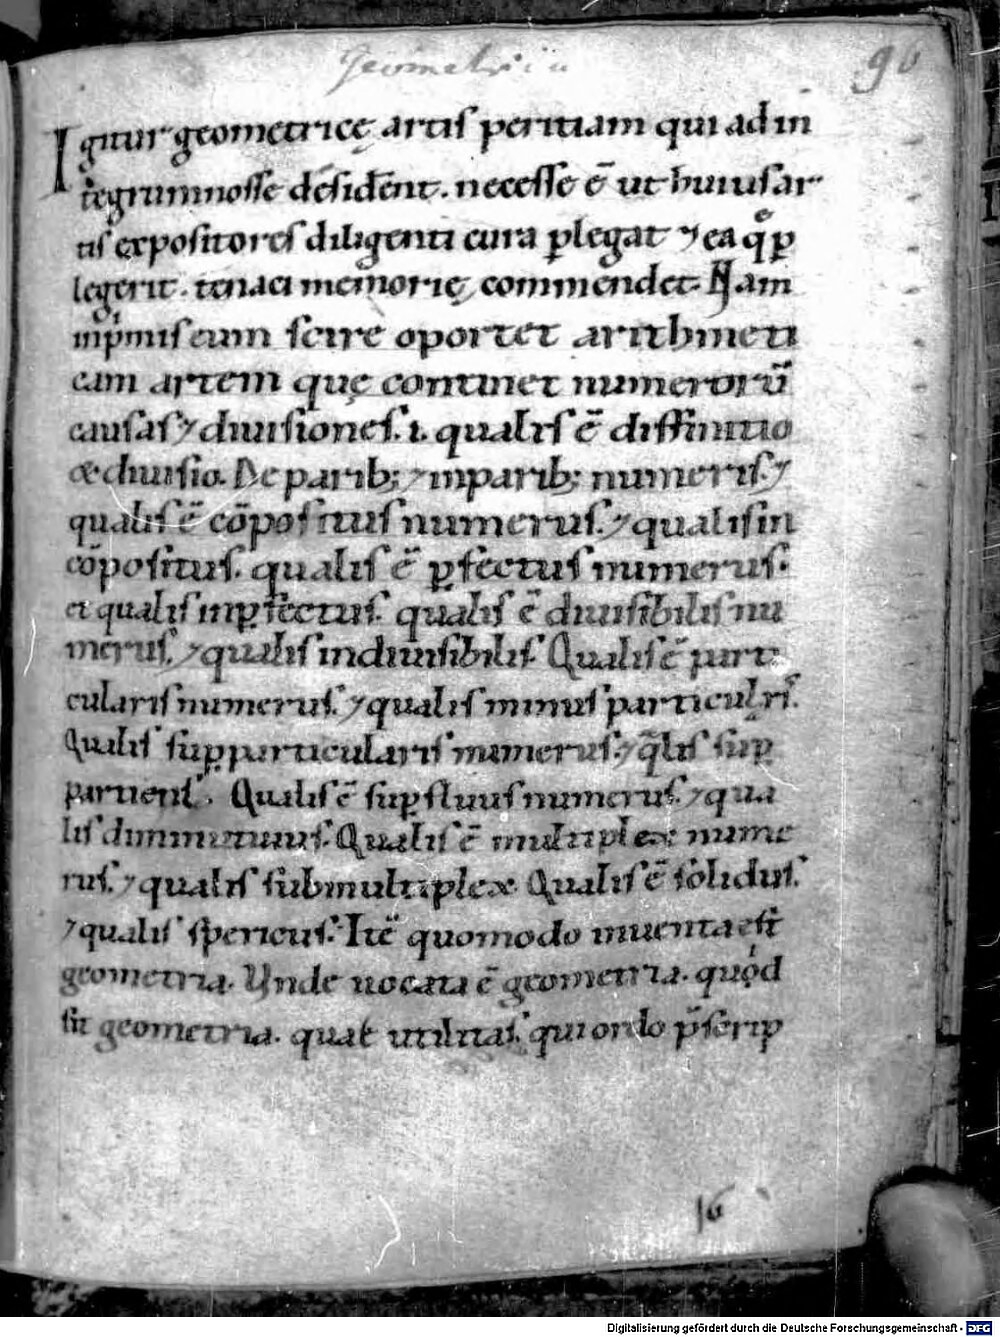 Geometria
96
Igitur geometricę artis peritiam qui ad in
tegrum nosse desident. necesse ē ut huius ar
tis expositores diligenti cura ꝑlegat ⁊ ea q̊ ꝑ
legerit. tenaci memorię commendet. Nam
inpͥmis eum scire oportet arithmeti
cam artem quę continet numerorū
causas ⁊ diuisiones. i. qualis ē diffinitio
& diuisio. De parib; ⁊ inparib; numeris. ⁊
qualis ē cōpositus numerus. ⁊ qualis in
cōpositus. qualis ē ꝑfectus numerus.
et qualis inꝑfectus. qualis ē diuisibilis nu
merus. ⁊ qualis indiuisibilis. Qualis ē parti
cularis numerus. ⁊ qualis minus particulris.
Qualis suꝑparticularis numerus. ⁊ q̄lis suꝑ
partiens. Qualis ē suꝑfluus numerus. ⁊ qua
lis diminutiuus. Qualis ē multiplex nume
rus. ⁊ qualis submultiplex. Qualis ē solidus.
⁊ qualis spericus. Itē quomodo inuenta est
geometria. Unde uocata ē geometria. quod
sit geometria. quae utilitas. qui ordo p̄scrip
16
Digitalisierung gefördert durch die Deutsche Forschungsgemeinschaft - DFG